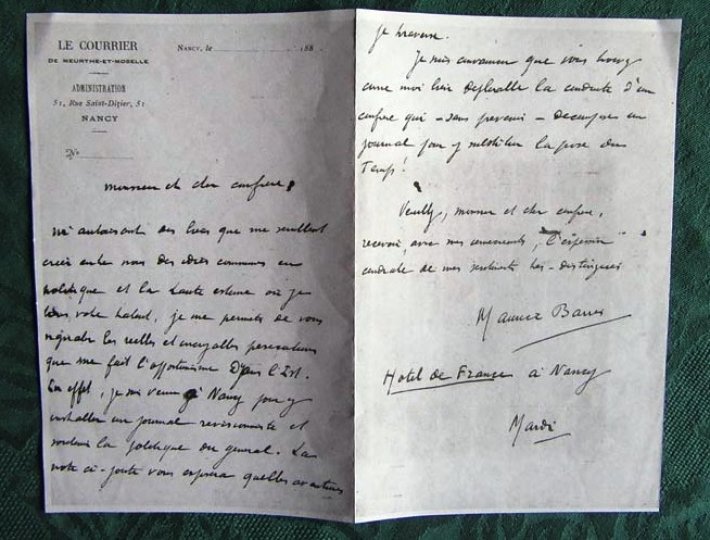 LE COURRIER
DE MEURTHE-ET-MOSELLE
ADMINISTRATION
51, Rue Saint-Dizier, 51
NANCY
Nancy, le 188
No
Monsieur et cher confrère,
M'autorisant des liens que me semblent
créer entre nous des idées communes en
politique et la haute estime où je
tiens votre talent, je me permets de vous
signaler les réelles et incroyables persécutions
que me fait l'opportunisme dans l'Est.
En effet, je suis venu à Nancy pour y
installer un journal revisionniste et
soutenir la politique du général. La
note ci-jointe vous exposera quelles aventures
je traverse.
Je suis convaincu que vous
comme moi bien déplorable la conduite d'un
confrère qui - sans prévenir - décompose un
journal pour y substituer la prose du
Temps!
Veuillez, monsieur et cher confrère,
recevoir, avec mes, l'expression
cordiale de mes sentiments très-distingués
Maurice Barrès
Hotel de France à Nancy
Mardi